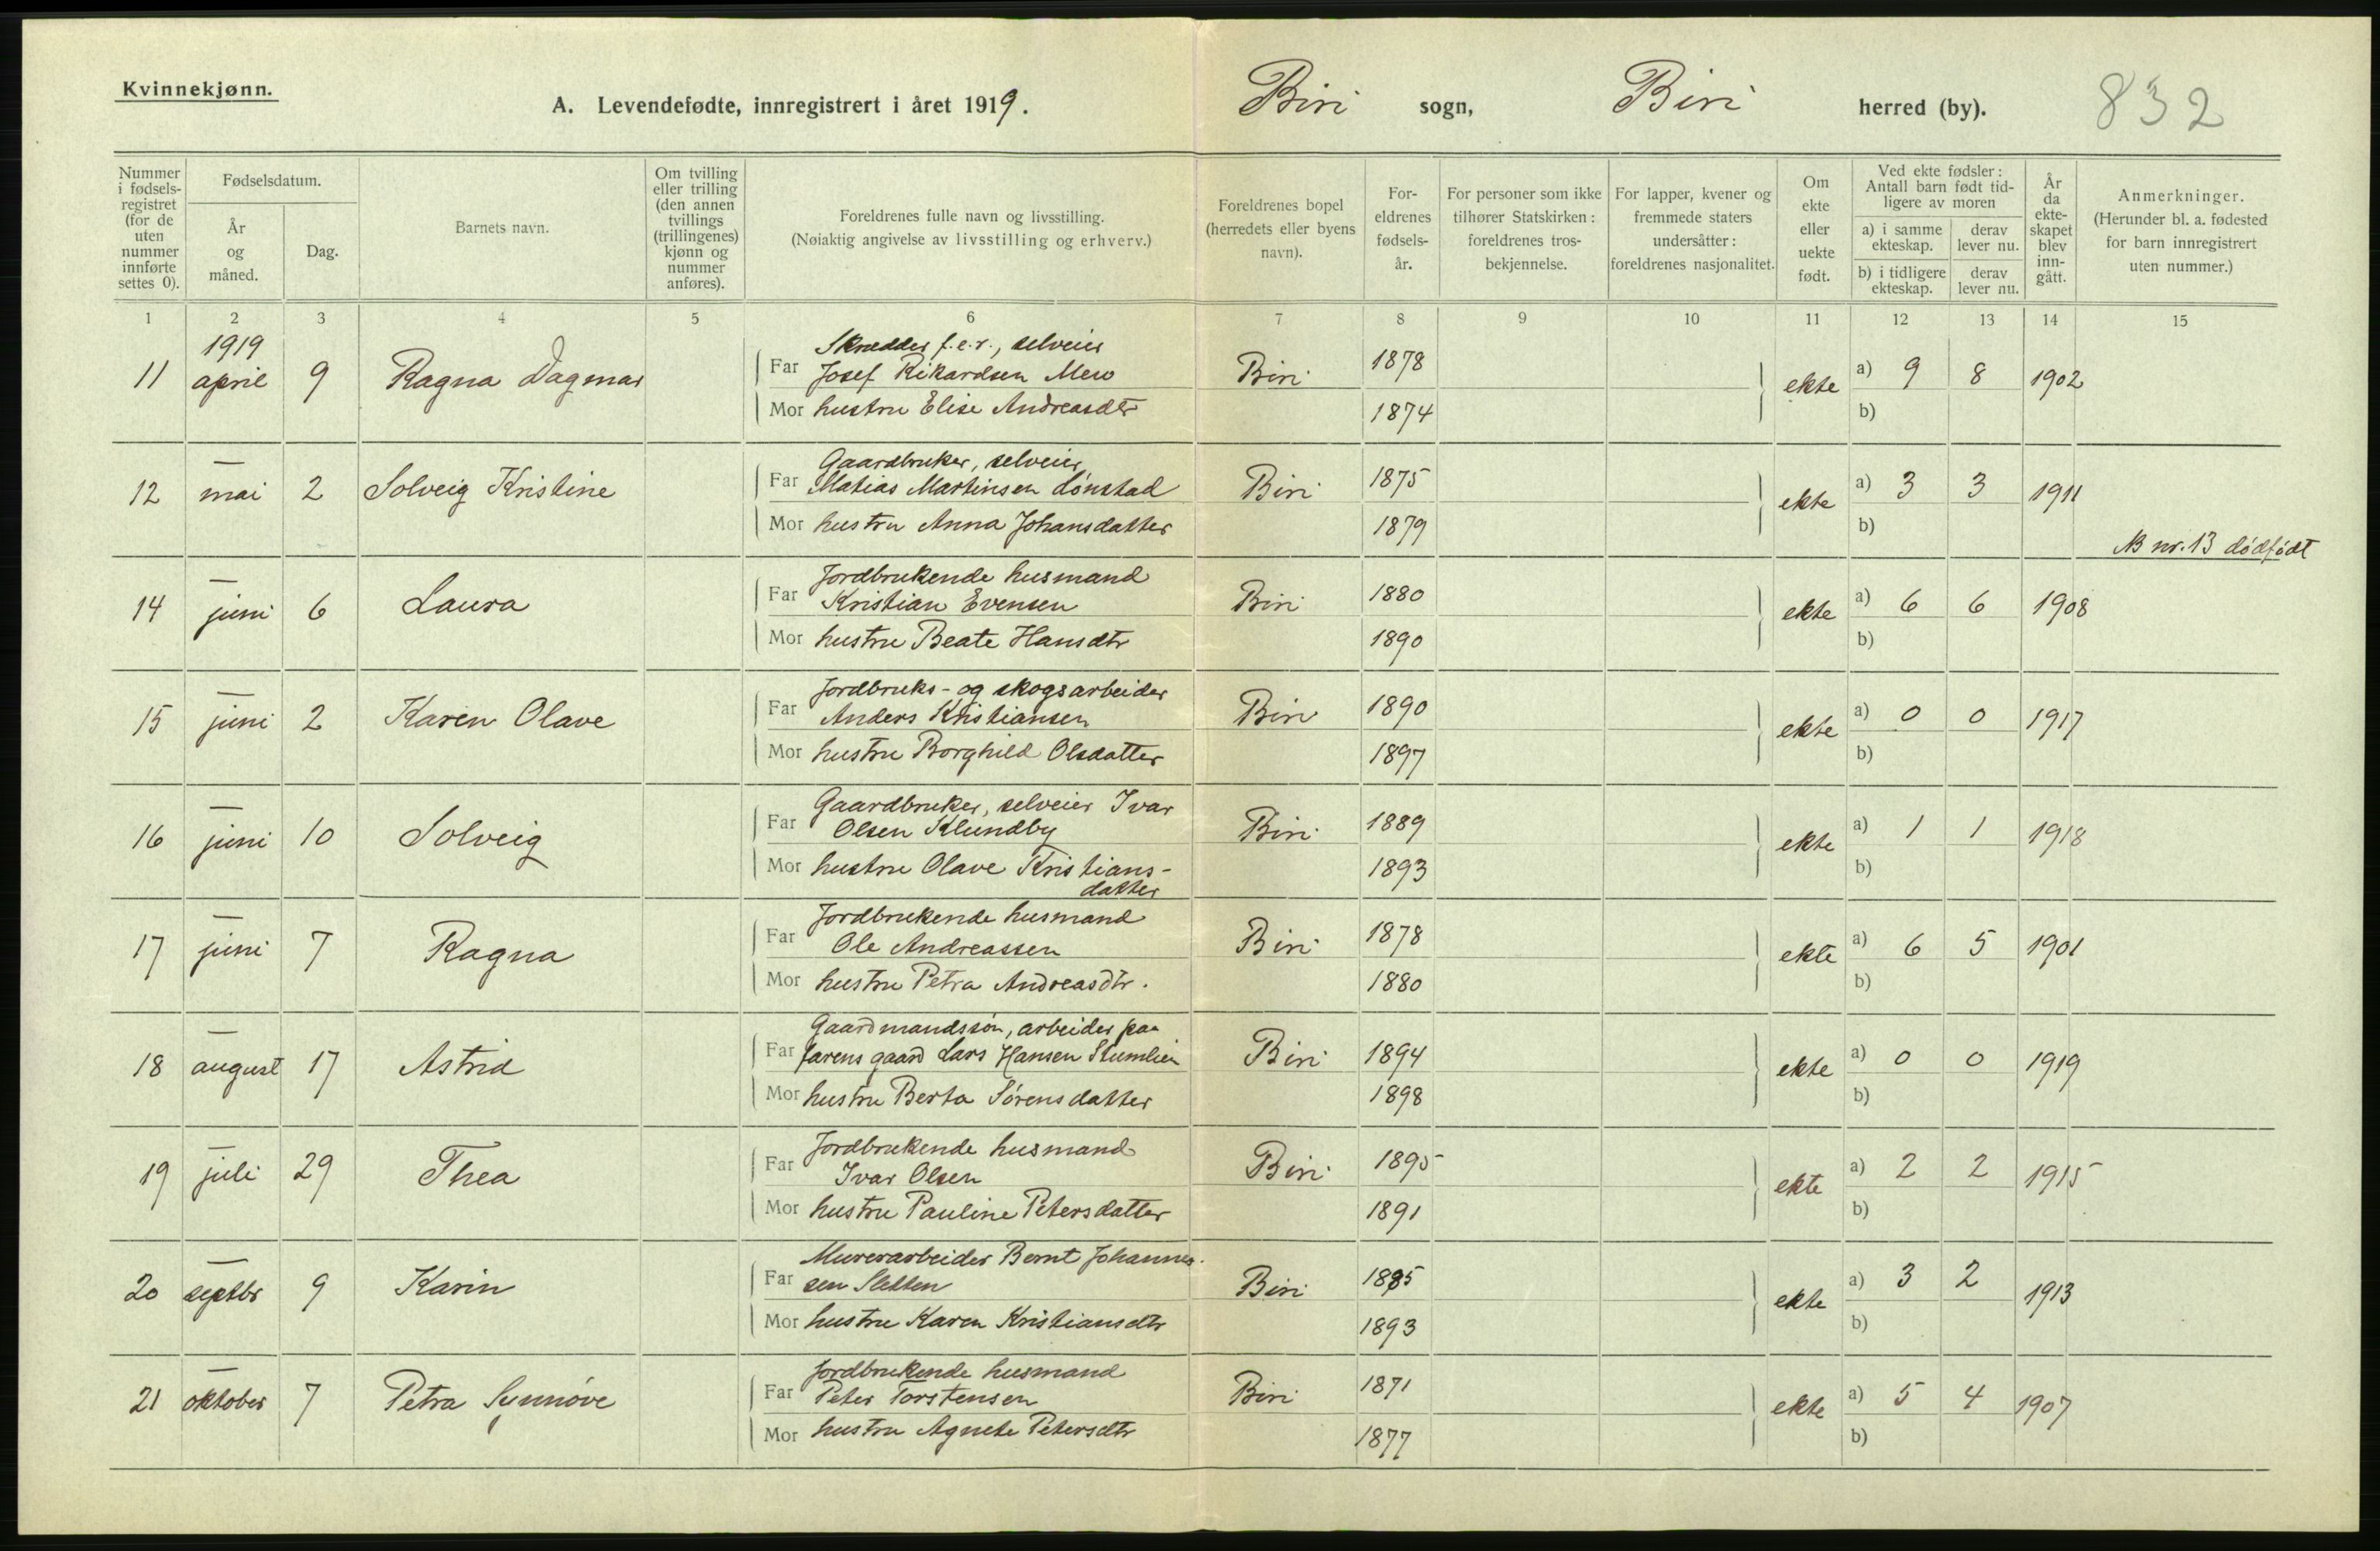 Kvinnekjønn.
A. Levendefødte, innregistrert i året 1919. Biri sogn, Biri herred (by). 832
Nummer i fødselsregistret (for de uten nummer innførte settes 0).
Fødselsdatum.
År og måned.
Dag.
Barnets navn.
Om tvilling eller trilling (den annen tvillings (trillingenes) kjønn og nummer anføres).
Foreldrenes fulle navn og livsstilling.
(Nøiaktig angivelse av livsstilling og erhverv.)
Foreldrenes bopel (herredets eller byens navn).
Foreldrenes fødselsår.
For personer som ikke tilhører Statskirken: foreldrenes trosbekjennelse.
For lapper, kvener og fremmede staters undersåtter: foreldrenes nasjonalitet.
Om ekte eller uekte født.
Ved ekte fødsler: Antall barn født tidligere av moren
a) i samme ekteskap. derav lever nu.
b) i tidligere ekteskap. derav lever nu.
År da ekteskapet blev inngått.
Anmerkninger.
(Herunder bl. a. fødested for barn innregistrert uten nummer.)
1 2 3 4 5 6 7 8 9 10 11 12 13 14 15
1919
Skrædder f.e.r., selveier
11 april 9 Ragna Dagmar Far Josef Rikardsen Biri 1878 ekte a) 9 8 1902
Mor hustru Elise Andreasdtr 1874 b)
— Gaardbruker, selveier
12 mai 2 Solveig Kristine Far Matias Martinsen Lønstad Biri 1875 ekte a) 3 3 1911
Mor hustru Anna Johansdatter 1879 b)
NB nr. 13 dødfødt
— Jordbrukende husmand
14 juni 6 Laura Far Kristian Evensen Biri 1880 ekte a) 6 6 1908
Mor hustru Beate Hansdtr 1890 b)
— Jordbruks- og skogsarbeider
15 juni 2 Karen Olave Far Anders Kristiansen Biri 1890 ekte a) 0 0 1917
Mor hustru Borghild Olsdatter 1897 b)
— Gaardbruker, selveier Ivar
16 juni 10 Solveig Far Olsen Klundby Biri 1889 ekte a) 1 1 1918
Mor hustru Olave Kristians- 1893 b)
datter
— Jordbrukende husmand
17 juni 7 Ragna Far Ole Andreassen Biri 1878 ekte a) 6 5 1901
Mor hustru Petra Andreasdtr. 1880 b)
— Gaardmandssøn, arbeider paa
18 august 17 Astrid Far farens gaard Lars Hansen Biri 1894 ekte a) 0 0 1919
Mor hustru Berta Sørensdatter 1898 b)
— Jordbrukende husmand
19 juli 29 Thea Far Ivar Olsen Biri 1895 ekte a) 2 2 1915
Mor hustru Pauline Petersdatter 1891 b)
— Murerarbeider Bernt Johannes-
20 septbr 9 Karin Far sen Sletten Biri 1885 ekte a) 3 2 1913
Mor hustru Karen Kristiansdtr 1893 b)
— Jordbrukende husmand
21 oktober 7 Petra Synnøve Far Peter Torstensen Biri 1871 ekte a) 5 4 1907
Mor hustru Agnete Petersdtr 1877 b)